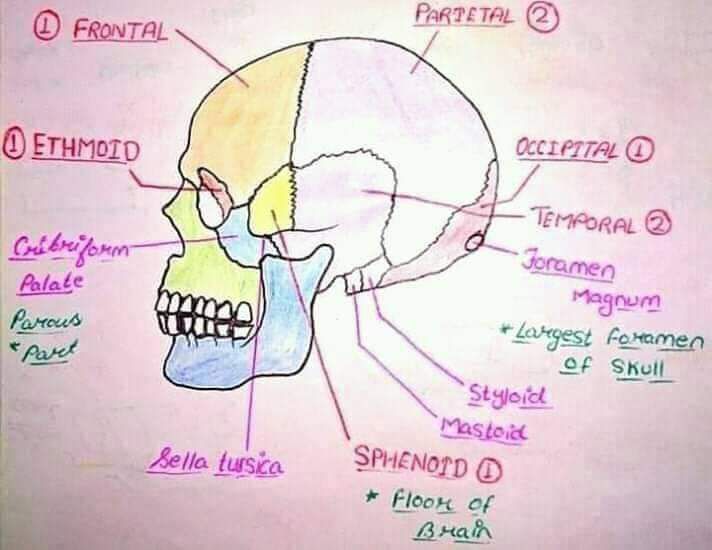 ① FRONTAL
PARIETAL ②
① ETHMOID
OCCIPITAL ①
TEMPORAL ②
Cribriform
Palate
Parous
* Part
Foramen
Magnum
* Largest foramen
of Skull
Styloid
Mastoid
Sella tursica
SPHENOID ①
* Floor of
Brain